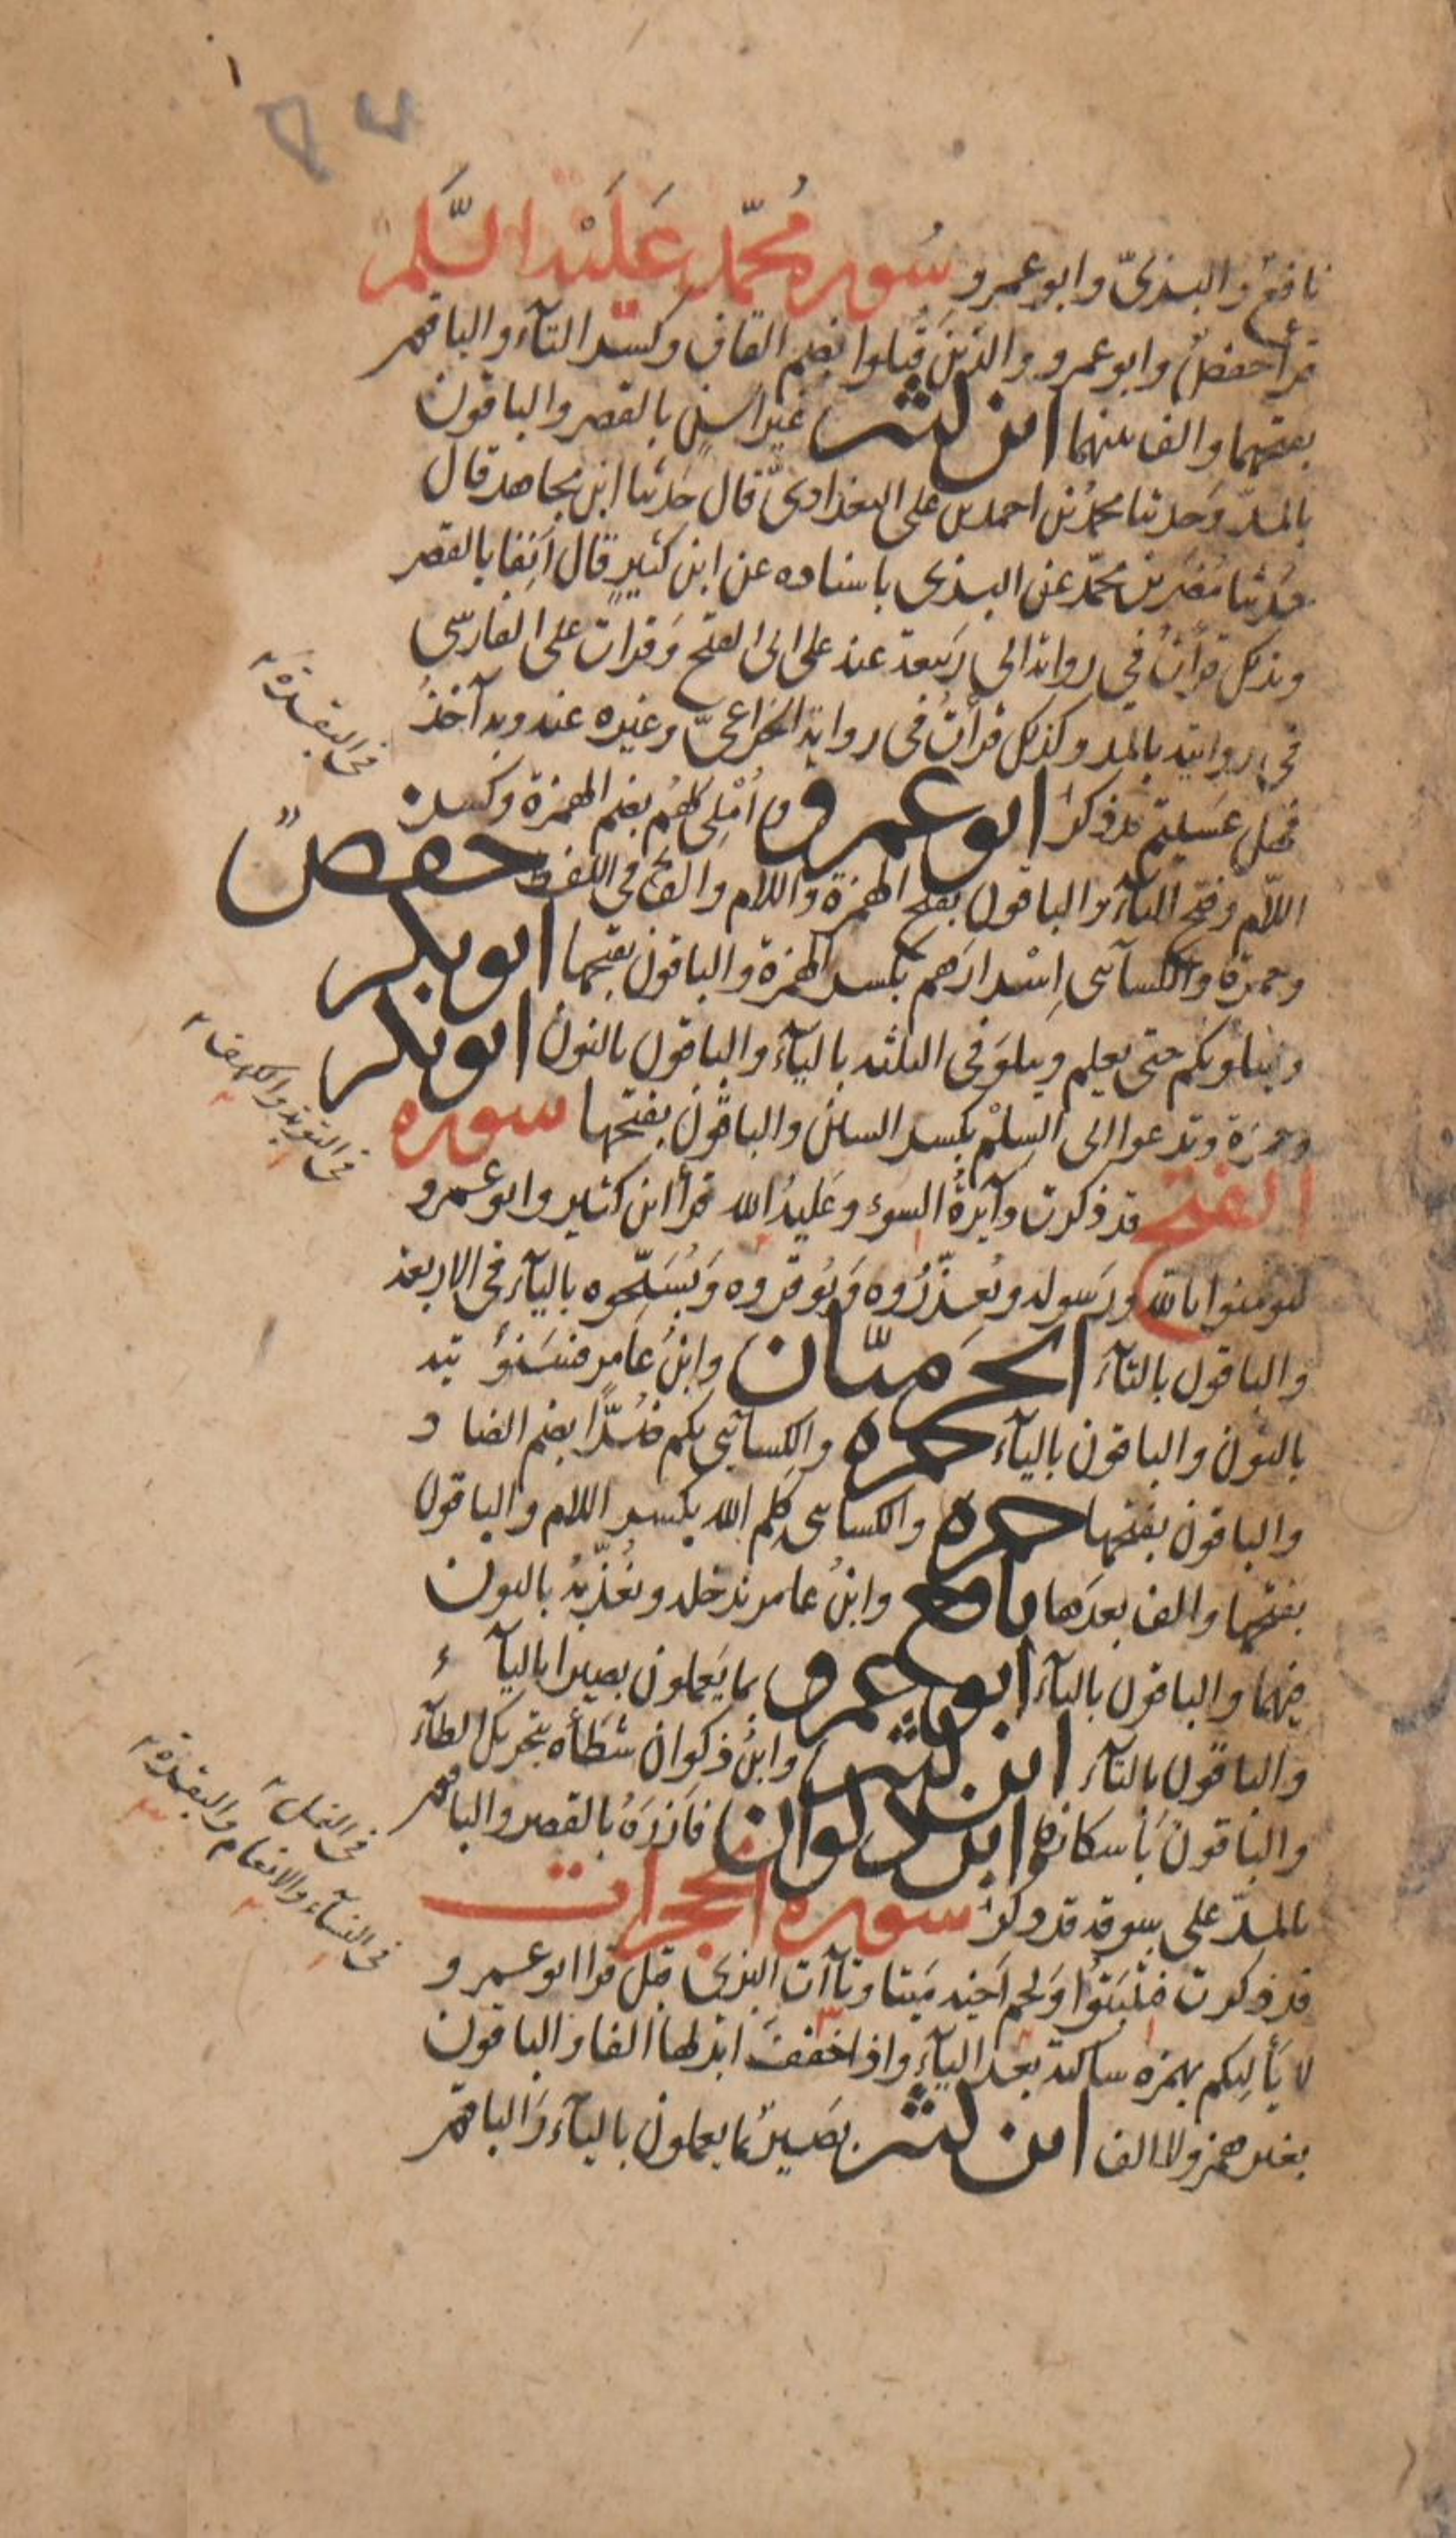 نافع والبزيّ وابو عمرو سُورة مُحمّد عَلَيْه السَّلم
قرأ حفصٌ وابو عمرو والذين قُتِلوا بضم القاف وكسر التآء والباقون
بفتحهما والف بينهما ابن كثير غير اسِنٍ بالقصر والباقون
بالمدّ وحدثنا محمدُ بن احمد بن على البغداديّ قال حَدثنا ابن مجاهد قال
حدثنا مُضَر بن محمّد عن البزى باسناده عن ابن كثيرٍ قال اَنِفا بالقصر
وبذلك قرأت في رواية ابي رَبيعة عنه على ابى الفتح وَقرات على الفارسّى
في روايته بالمد وكذلك قرأتُ في رواية الخزاعيّ وغيره عنه وبه آخذُ
فهل عَسَيتم قد ذكر ابو عمرو وَاُمْلِىَ لهُم بضم الهمزة وكسر
اللّام وفتح اليآء والباقون بفتح الهمزة واللام والف في اللفظ حفصٌ
وحمزة والكسآئى اِسْرارَهم بكسر الهمزة والباقون بفتحها ابو بكر
وليبلونكم حتى يعلم ويبلوَ فى الثلثه باليآء والباقون بالنون ابو بكر
وحمزَة وتدعوا الى السِلْم بكسر السين والباقون بفتحها سورة
الفتح قد ذكرت دآئِرةُ السوء وعَليهُ الله قرأ ابن كثير وابو عمرو
ليومنوا بالله ورَسوله ويُعَزّرُوه وَيُوقروه وَيُسَبّحوه باليآء في الاربعة
والباقون بالتآء الحَرَميّان وابنُ عَامر فسَنُؤْ تيه
بالنون والباقون باليآء حمزة والكسآئي بكم ضُرًّا بضم الضا د
والباقون بفتحها حمزة والكسائى كَلِم الله بكسر اللام والباقون
بفتحها والف بعدَها نافع وابنُ عامر ندخله ونُعَذّبهُ بالنون
فيهما والباقون باليآء ابو عمرو بما يَعملون بصيرا باليآ ء
والباقون بالتآء ابن كثير وابنُ ذكوان شطَأَه بتحريك الطآء
والباقون بأسكانها ابن ذكوان فاَزَرَهُ بالقصر والباقون
بالمدّ على سوقه قد ذكر سورة الحجرات
قد ذكرت فتثبتُوا وَلحم اَخيه مَيتا وتاآت البزي قبل قرا ابو عمرو
لا يَأْلِتكم بهمزه ساكنة بعد اليآء واذا خففَ ابدلها الفا والباقون
بغير همز ولا الف ابن كثير بصَيرٌ بما يعملون باليآء وَالباقون
في البقرة
في التوبة والكهف
في النمل
في النسآء والانعام والبقرة